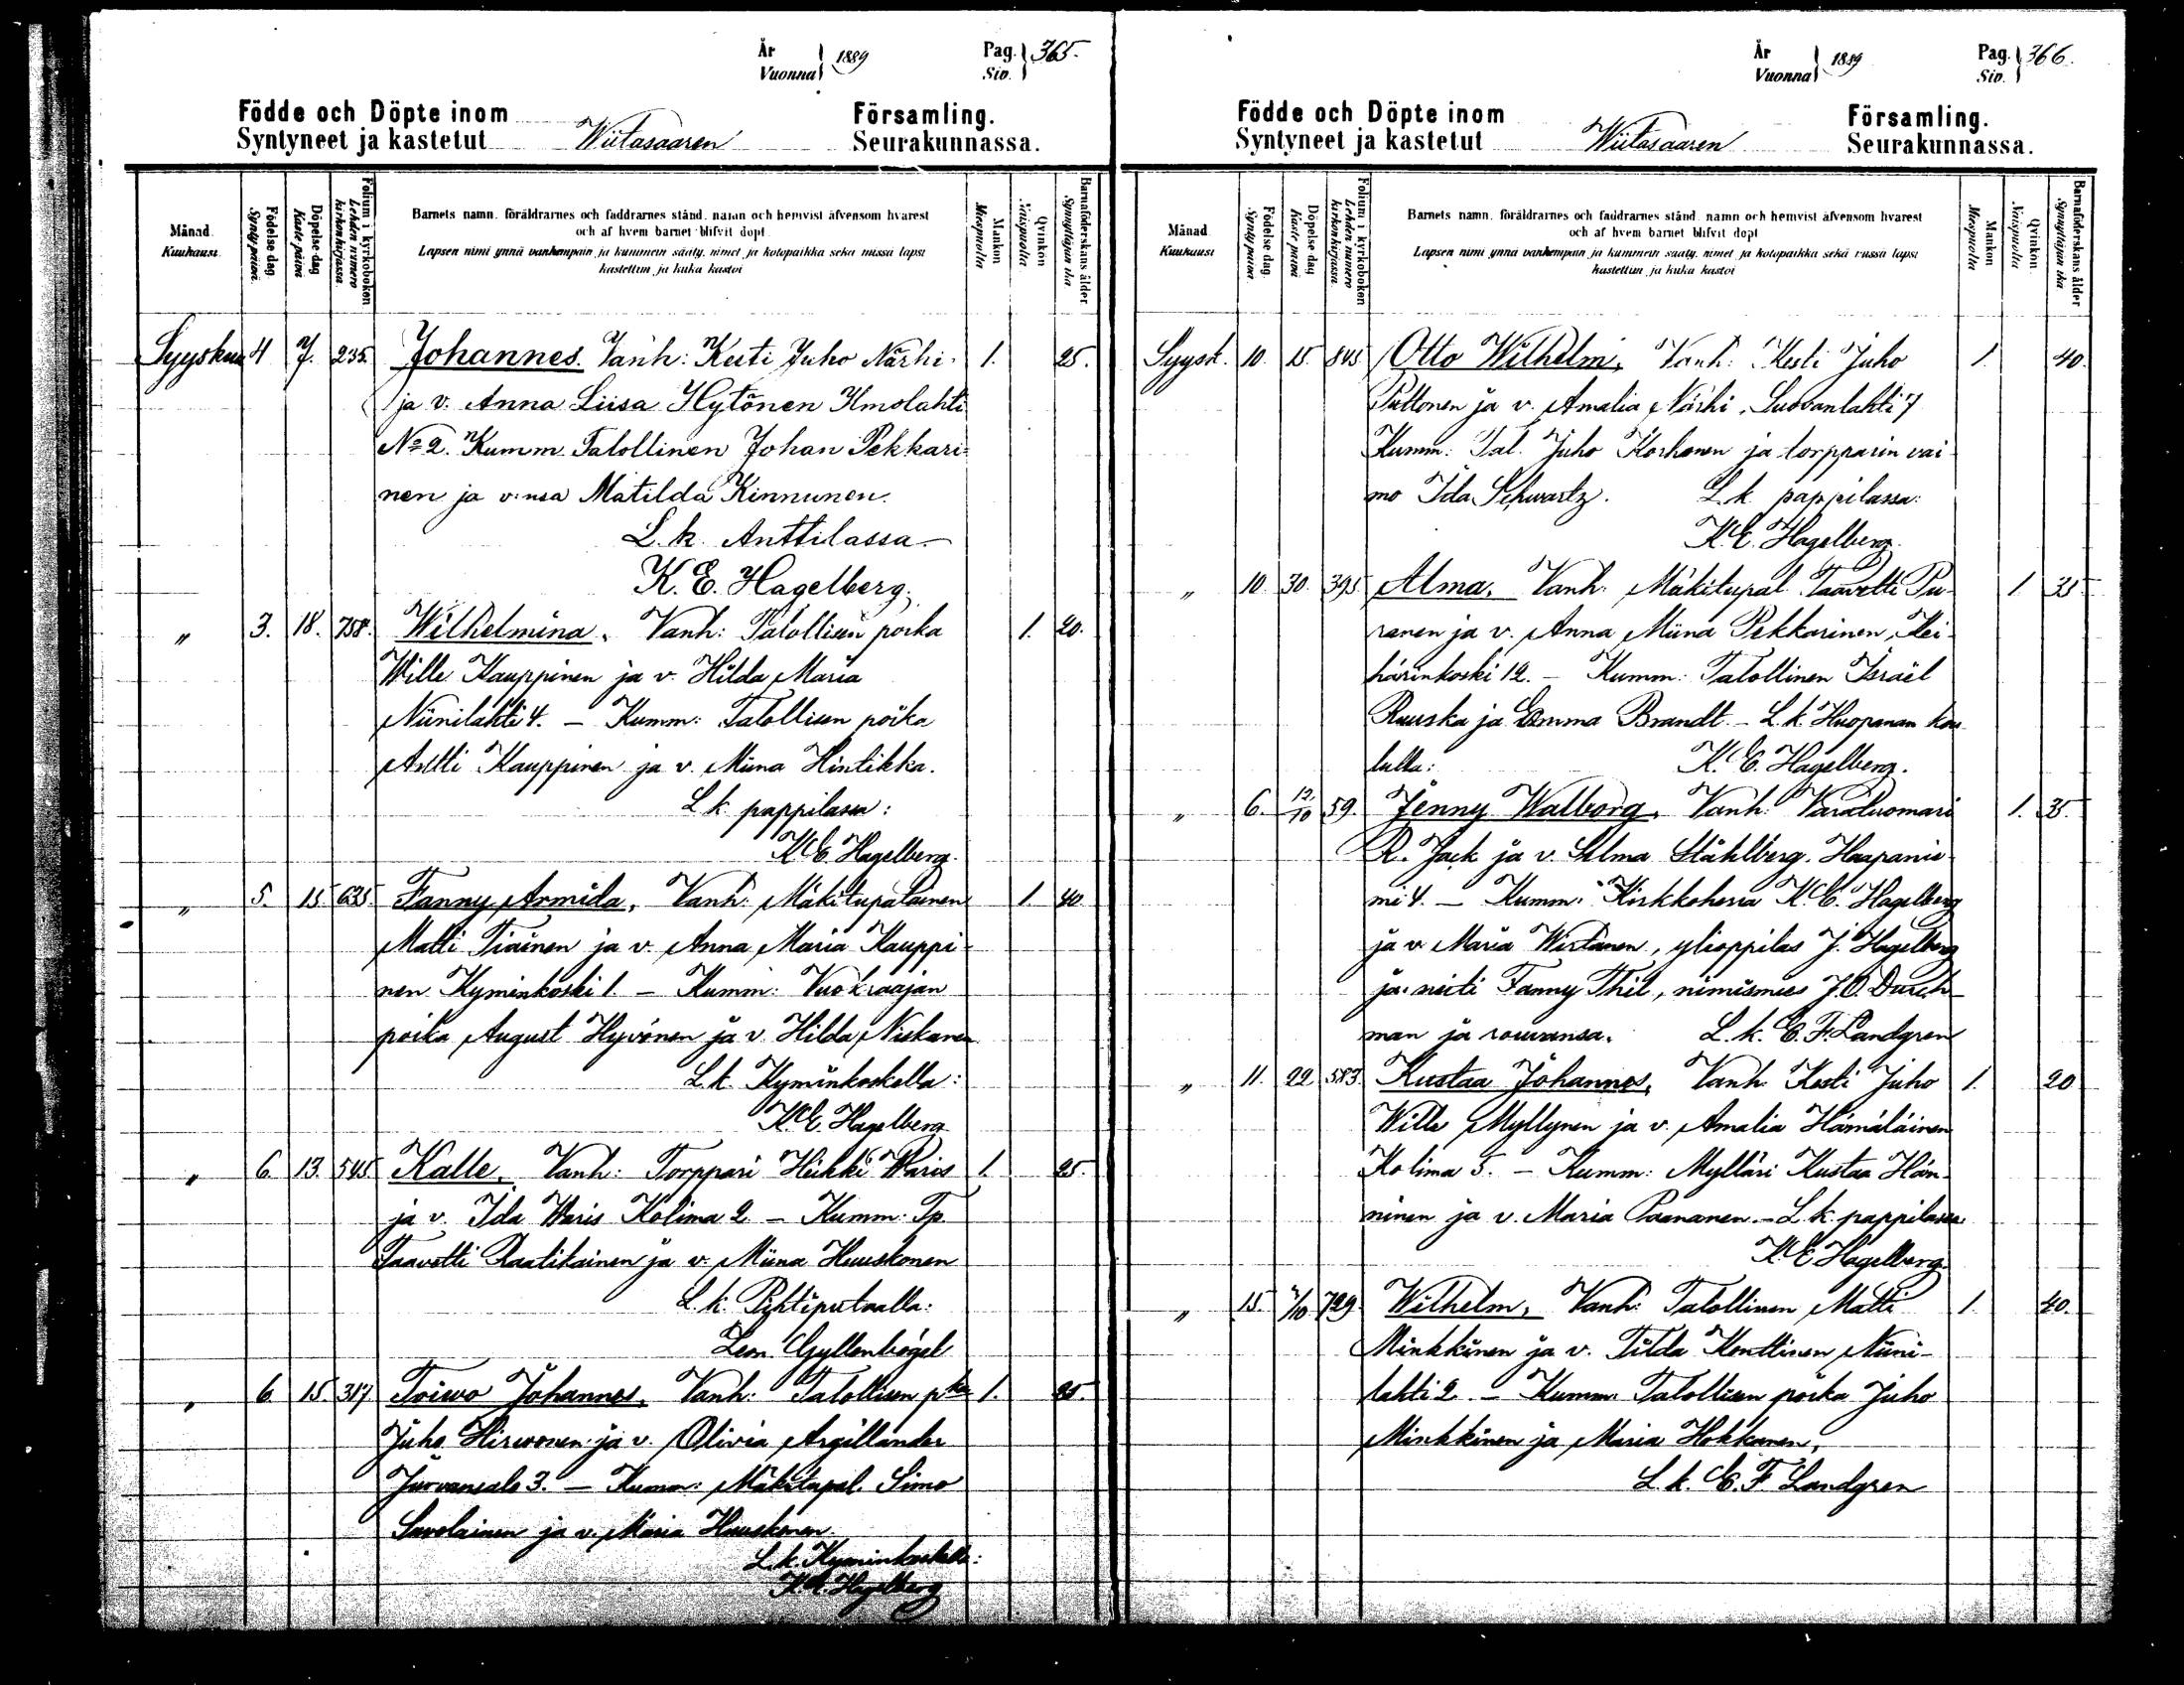 År
Vuonna } 1889
Pag.
Siv. } 365.
Födde och Döpte inom Församling.
Syntyneet ja kastetut Wiitasaaren Seurakunnassa.
Månad.
Kuukausi.
Födelse dag.
Synty päivä.
Döpelse dag
Kaste päivä
Folium i kyrkoboken
Lehden numero
kirkonkirjassa.
Barnets namn, föräldrarnes och faddrarnes stånd, namn och hemvist äfvensom hvarest
och af hvem barnet blifvit döpt
Lapsen nimi ynnä vanhempain ja kummein sääty, nimet ja kotopaikka sekä missä lapsi
kastettiin ja kuka kastoi
Mankön
Miespuolta
Qvinkön
Naispuolta
Barnaföderskans ålder
Synnyttäjän ikä
Syyskuu 4 7. 235. Johannes. Vanh: Kesti Juho Närhi 1. 25.
ja v. Anna Liisa Hytönen Ilmolahti
№ 2. Kumm. Talollinen Johan Pekkari-
nen ja v:nsa Matilda Kinnunen.
L. k. Anttilassa.
K. E. Hagelberg.
" 3. 18. 758. Wilhelmina. Vanh: Talollisen poika 1. 20.
Wille Kauppinen ja v. Hilda Maria
Niinilahti 4. – Kumm: Talollisen poika
Antti Kauppinen ja v. Miina Hintikka.
L. k. pappilassa:
K. E. Hagelberg.
" 5. 15. 635. Fanny Armida. Vanh. Mäkitupalainen 1. 40
Matti Tiainen ja v. Anna Maria Kauppi-
nen Kyminkoski 1. – Kumm: Vuokraajan
poika August Hyvönen ja v. Hilda Niskanen
L. k. Kyminkoskella:
K. E. Hagelberg
" 6. 13. 545. Kalle. Vanh: Torppari Heikki Waris 1. 25.
ja v. Ida Waris Kolima 2 – Kumm. Tp.
Taavetti Raatikainen ja v. Miina Huuskonen
L. k. Pihtiputaalla:
Leon. Gyllenbögel
" 6. 15. 317 Toiwo Johannes. Vanh: Talollisen pka 1.
Juho Hirvonen ja v. Olivia Argillander
Jurvansalo 3. – Kumm: Mäkitupal. Simo
Savolainen ja v. Maria Huuskonen.
L. k. Kyminkoskella:
K. E. Hagelberg
År
Vuonna } 1889
Pag.
Siv. } 366.
Födde och Döpte inom Församling.
Syntyneet ja kastetut Wiitasaaren Seurakunnassa.
Månad
Kuukausi
Födelse dag.
Synty päivä.
Döpelse dag
Kaste päivä
Folium i kyrkoboken
Lehden numero
kirkonkirjassa.
Barnets namn, föräldrarnes och faddrarnes stånd, namn och hemvist äfvensom hvarest
och af hvem barnet blifvit döpt
Lapsen nimi ynnä vanhempain ja kummein sääty, nimet ja kotopaikka sekä missä lapsi
kastettiin ja kuka kastoi
Mankön
Miespuolta
Qvinkön
Naispuolta
Barnaföderskans ålder
Synnyttäjän ikä
Syysk. 10. 15. 845 Otto Wilhelm. Vanh: Kesti Juho 1. 40.
Puttonen ja v. Amalia Närhi, Suovanlahti 7
Kumm: Tal. Juho Korhonen ja torpparin vai-
mo Ida Schwartz. L. k. pappilassa:
K. E. Hagelberg.
" 10. 30. 395. Alma. Vanh. Mäkitupal. Taavetti Pu- 1 35
ranen ja v. Anna Miina Pekkarinen, Kei-
härinkoski 12. – Kumm: Talollinen Israël
Ruuska ja Emma Brandt. – L. k. Huopanan kou-
lulla: K. E. Hagelberg.
" 6. 12/10 59. Jenny Walborg. Vanh: Varatuomari 1. 35.
R. Jack ja v. Selma Ståhlberg. Haapanie-
mi 4. – Kumm: Kirkkoherra K. E. Hagelberg
ja v. Maria Wirtanen, ylioppilas J. Hagelberg
ja neiti Fanny Thil, nimismies J. O. Durch-
man ja rouvansa. L. k. E. F. Landgren
" 11. 22. 583. Kustaa Johannes. Vanh. Kesti Juho 1. 20
Wille Myllynen ja v. Amalia Hämäläinen
Kolima 5. – Kumm: Mylläri Kustaa Hän-
ninen ja v. Maria Paananen. – L. k. pappilassa
K. E. Hagelberg.
" 15. /10 729. Wilhelm. Vanh: Talollinen Matti 1. 40.
Minkkinen ja v. Tilda Konttinen Niini-
lahti 2. – Kumm. Talollisen poika Juho
Minkkinen ja Maria Hokkanen.
L. k. E. F Landgren